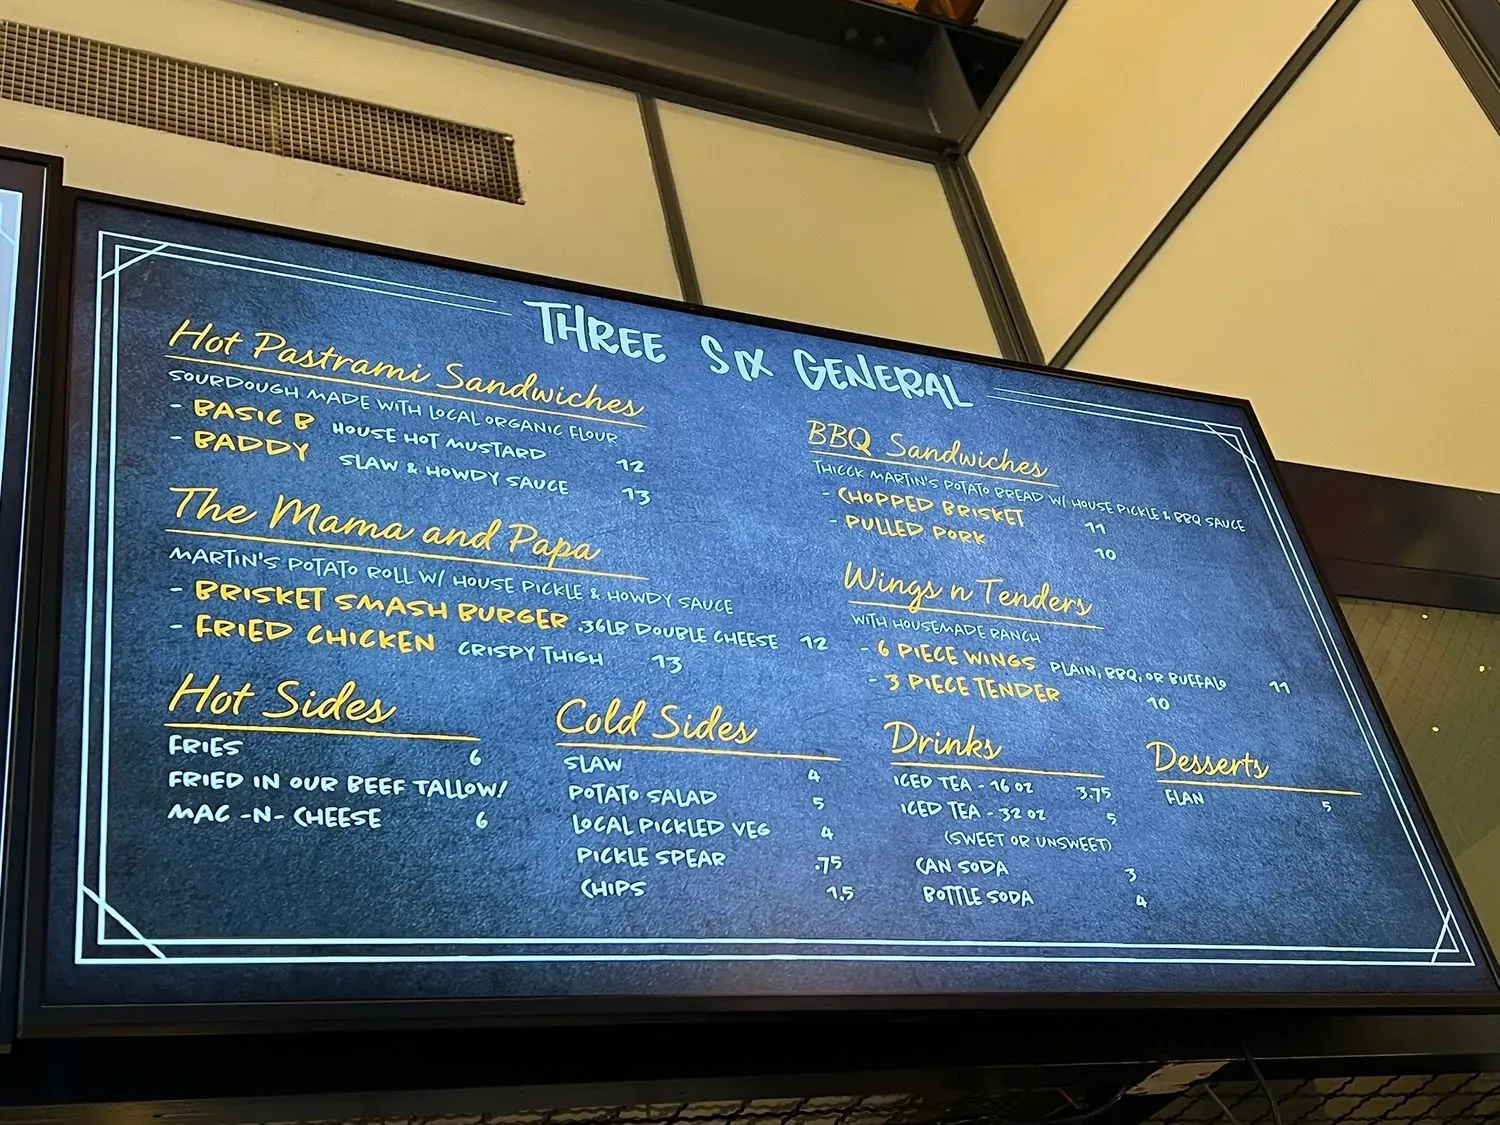 THREE SIX GENERAL
Hot Pastrami Sandwiches
SOURDOUGH MADE WITH LOCAL ORGANIC FLOUR
- BASIC B HOUSE HOT MUSTARD 12
- BADDY SLAW & HOWDY SAUCE 13
The Mama and Papa
MARTIN'S POTATO ROLL W/ HOUSE PICKLE & HOWDY SAUCE
- BRISKET SMASH BURGER .36LB DOUBLE CHEESE 12
- FRIED CHICKEN CRISPY THIGH 13
BBQ Sandwiches
THICCK MARTIN'S POTATO BREAD W/ HOUSE PICKLE & BBQ SAUCE
- CHOPPED BRISKET 11
- PULLED PORK 10
Wings n Tenders
WITH HOUSEMADE RANCH
- 6 PIECE WINGS PLAIN, BBQ, OR BUFFALO 11
- 3 PIECE TENDER 10
Hot Sides
FRIES 6
FRIED IN OUR BEEF TALLOW!
MAC -N- CHEESE 6
Cold Sides
SLAW 4
POTATO SALAD 5
LOCAL PICKLED VEG 4
PICKLE SPEAR .75
CHIPS 1.5
Drinks
ICED TEA - 16 OZ 3.75
ICED TEA - 32 OZ 5
(SWEET OR UNSWEET)
CAN SODA 3
BOTTLE SODA 4
Desserts
FLAN 5